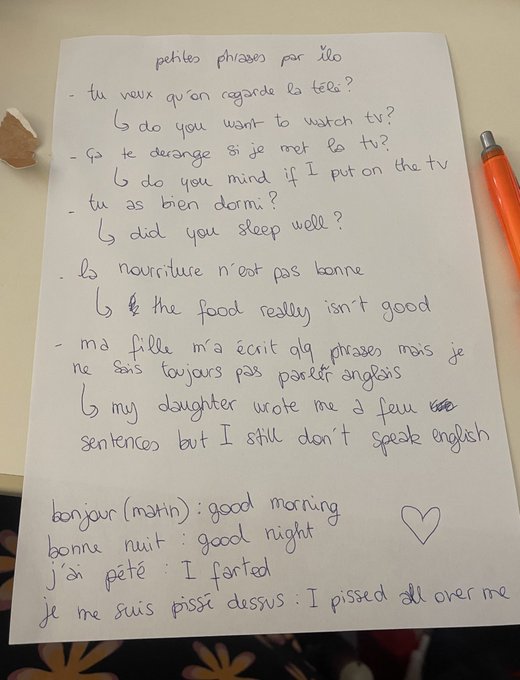 petites phrases par ilo
- tu veux qu'on regarde la télé?
↳ do you want to watch tv?
- ça te derange si je met la tv?
↳ do you mind if I put on the tv
- tu as bien dormi?
↳ did you sleep well?
- la nourriture n'est pas bonne
↳ the food really isn't good
- ma fille m'a écrit qlq phrases mais je
ne sais toujours pas parler anglais
↳ my daughter wrote me a few
sentences but I still don't speak english
bonjour (matin) : good morning
bonne nuit : good night
j'ai pété : I farted
je me suis pissé dessus : I pissed all over me